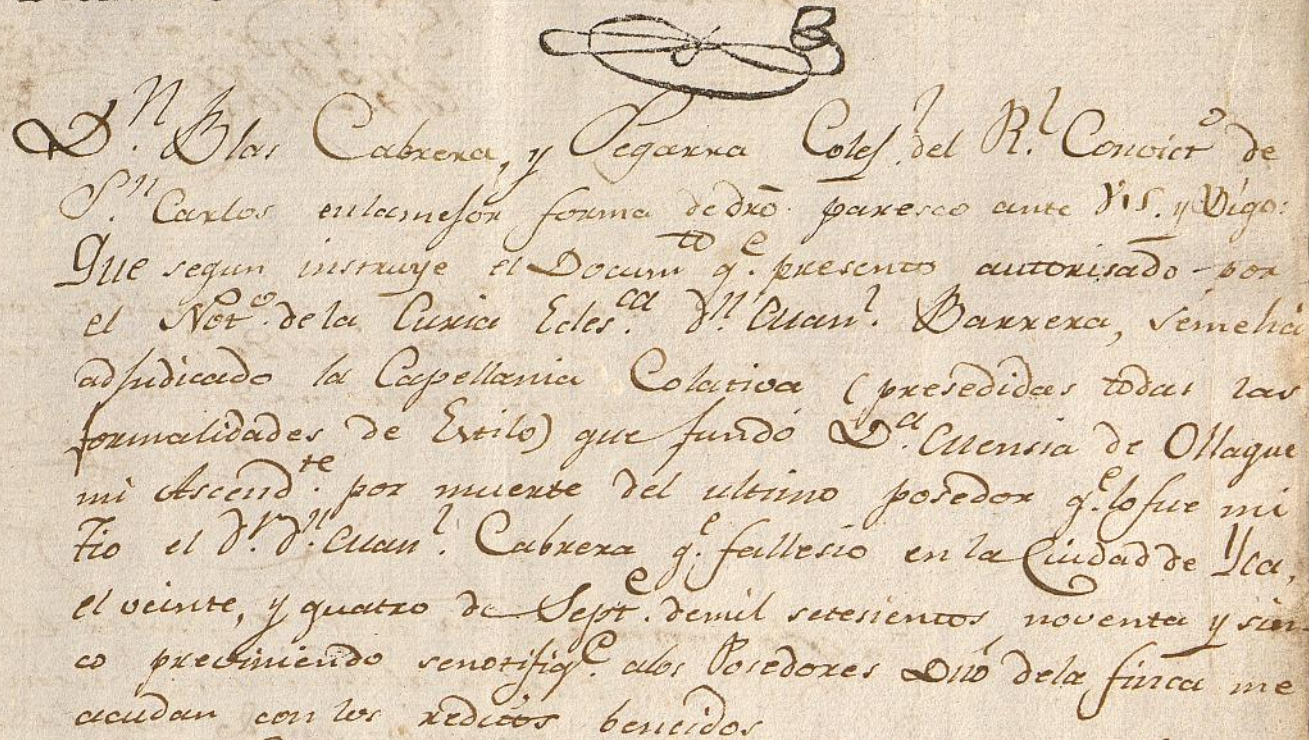 Dn. Blas Cabrera, y Segarra Colegl. del Rl. Convicto de
Sn. Carlos en la mejor forma de dro. paresco ante V.S. y Digo:
Que segun instruye el Documto qe. presento autorisado por
el Noto. de la Curia Ecles.ca Dn. Manl. Barrera, se me ha
adjudicado la Capellania Colativa (presedidas todas las
formalidades de Estilo) que fundó Da. Mensia de Ollague
mi Ascendte. por muerte del ultimo posedor qe. lo fue mi
Tio el Dr. Dn. Manl. Cabrera qe. fallesio en la Ciudad de Yca,
el veinte, y quatro de Septe. de mil setesientos noventa y sin
co previniendo se notifiqe. a los Posedores de la finca me
acudan con los reditos bencidos